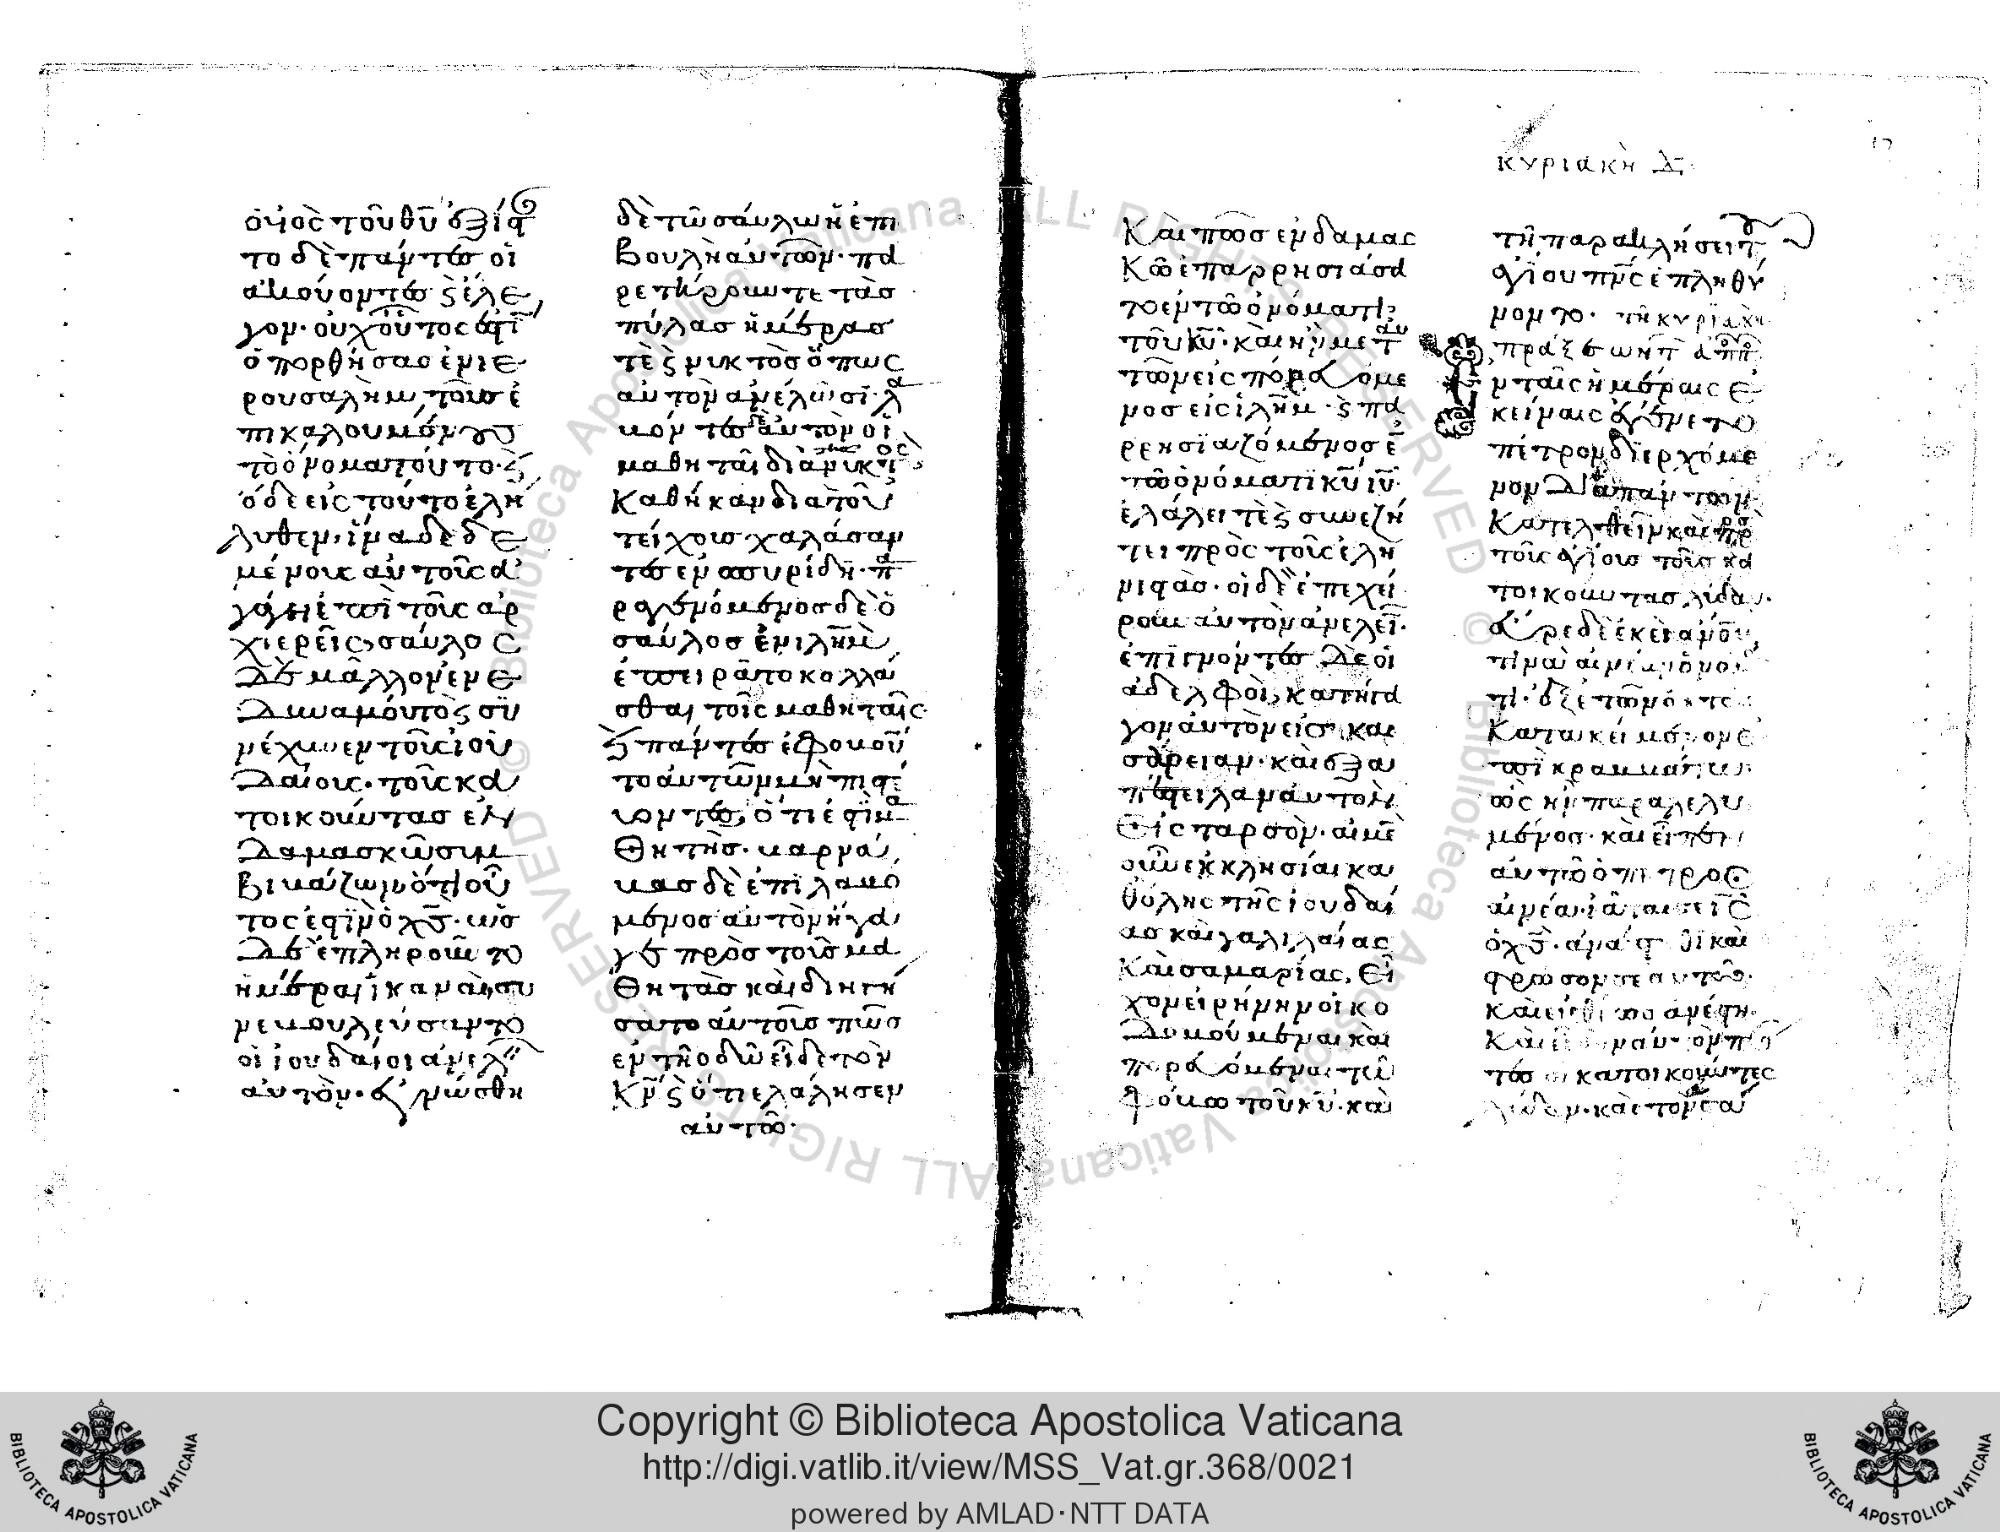 ὁ υἱὸς τοῦ θῦ ἐξίσταν
το δὲ πάντες οἱ
ἀκούοντες ϗ ἔλε
γον· οὐχ οὗτος ἐστιν
ὁ πορθήσας ἐν ἱε
ρουσαλὴμ τοὺς ἐ
πικαλουμένους
τὸ ὄνομα τοῦτο· ϗ
ὧδε εἰς τοῦτο ἐλη
λυθεν, ἵνα δεδε
μένους αὐτοὺς ἀ
γάγη ἐπὶ τοὺς ἀρ
χιερεῖς, σαῦλος
δὲ μᾶλλον ἐνε
δυναμοῦτο ϗ συ
νέχυνεν τοὺς ἰου
δαίους· τοὺς κα
τοικοῦντας ἐν
δαμασκῶ συμ
βιβάζων ὅτι οὗ
τος ἐστὶν ὁ χς· ὡς
δὲ ἐπληροῦντο
ἡμέραι ἱκαναὶ, συ
νεβουλεύσαντο
οἱ ἰουδαῖοι ἀνελεῖν
αὐτόν· ἐγνώσθη
δὲ τῶ σαύλω ἡ ἐπι
βουλὴ αὐτῶν· πα
ρετήρουν τε τὰς
πύλας ἡμέρας
τὲ ϗ νυκτὸς ὅπως
αὐτὸν ἀνέλωσι· λα
βόντες δὲ αὐτὸν οἱ
μαθηταὶ διὰ νυκτὸς
καθῆκαν διὰ τοῦ
τείχους χαλάσαν
τες ἐν σπυρίδι· πα
ραγενόμενος δὲ ὁ
σαῦλος ἐν ιλημ
ἐπειρᾶτο κολλᾶ
σθαι τοῖς μαθηταῖς·
ϗ πάντες ἐφοβοῦν
το αὐτὸν μὴ πιστεύ
οντες, ὅτι ἐστὶν μα
θητής· βαρνά
βας δὲ ἐπιλαβό
μενος αὐτὸν ἤγα
γε πρὸς τοὺς μα
θητὰς καὶ διηγή
σατο αὐτοῖς πῶς
ἐν τῆ ὁδῶ εἶδε τὸν
κν ϗ ὅτι ἐλάλησεν
αὐτῶ·
ΚΥΡΙΑΚΗ Δ
Καὶ πῶς ἐν δαμασ
κῶ ἐπαρρησιάσα
το ἐν τῶ ὀνόματι
τοῦ κυ· καὶ ἦν μετ αὐ
τῶν εἰσπορευόμε
νος εἰς ιλημ· ϗ πα
ρρησιαζόμενος ἐν
τῶ ὀνόματι κυ ιυ·
ἐλάλει τὲ ϗ συνεζή
τει πρὸς τοὺς ἑλη
νιστάς· οἱ δὲ ἐπεχεί
ρουν αὐτὸν ἀνελεῖν·
ἐπιγνόντες δὲ οἱ
ἀδελφοὶ, κατήγα
γον αὐτὸν εἰς και
σάρειαν· καὶ ἐξα
πέστειλαν αὐτὸν
εἰς ταρσόν· αἱ μὲν
οὖν ἐκκλησίαι κα
θ' ὅλης τῆς ἰουδαί
ας καὶ γαλιλαίας
καὶ σαμαρίας, εἶ
χον εἰρήνην οἰκο
δομούμεναι καὶ
πορευόμεναι τῶ
φόβω τοῦ κυ· καὶ
τῆ παρακλήσει τοῦ
ἁγίου πνς ἐπληθύ
νοντο· τῆ κυριακῆ
πράξεων τ ἀπο
Εν ταῖς ἡμέραις ἐ
κείναις ἐγένετο
πέτρον διερχόμε
νον διὰ πάντων
κατελθεῖν καὶ πρὸς
τοὺς ἁγίους τοὺς κα
τοικοῦντας λύδαν·
εὗρε δὲ ἐκεῖ ἄνον
τινα αἰνέαν ὀνόμα
τι· ἐξ ἐτῶν ὀκτὼ
κατακείμενον ἐ
πὶ κραββάτω·
ὃς ἦν παραλελυ
μένος· καὶ εἶπεν
αὐτῶ ὁ πέτρος
αἰνέα· ἰᾶται σε ις
ὁ χς· ἀνάστηθι καὶ
στρῶσον σεαυτῶ·
καὶ εὐθέως ἀνέστη·
καὶ εἶδον αὐτὸν πάν
τες οἱ κατοικοῦντες
λύδαν· καὶ τὸν σα